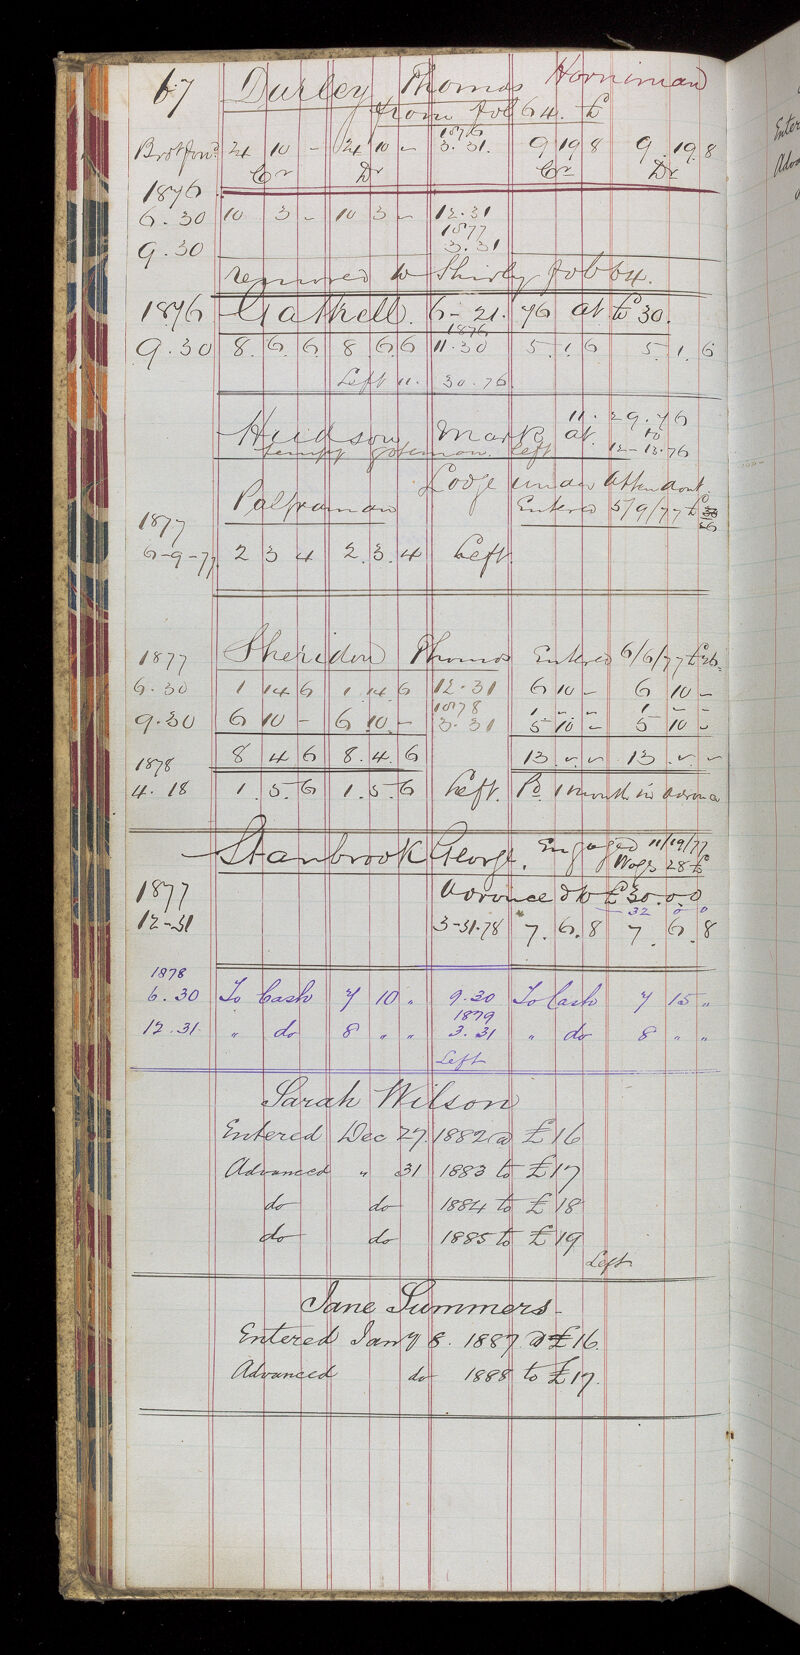 67 Durley Thomas Horniman
from fol 64. £
Brot for'd 24 10 - 24 10 - 1876 3.31. 9 19 8 9 19.8
Cr Dr Cr Dr
1876
6.30 10 3 - 10 3 - 12.31
1877
9.30 3.31
removed to Shirly fol 64.
1876 Gaskell. 6-21.76 at £30.
1876
9.30 8.6.6 8.6 6 11.30 5.1.6 5.1.6
Left 11.30.76.
11.29.76
Hudson Mark at 10
tempy left 12-13.76
Lodge under Attendant
Palframan Entered 5/9/77 £30
26
1877
6-9-77 2 3 4 2.3.4 Left.
1877 Sheridan Thomas Entered 6/6/77 £26
6.30 1 14 6 1.14 6 12.31 6 10 - 6 10 -
1878 1 - - 1 - -
9.30 6 10 - 6.10.- 3.31 5 10 - 5 10 -
8 4 6 8.4.6 13.-.- 13.-.-
1878
4.18 1.5.6 1.5.6 Left. Pd. 1 month in advance
Stanbrook George. Engaged 11/19/77
Wags 28 £
1877 Advanced to £30.0.0
32 0 0
12-31 3-31-78 7.6.8 7.6.8
1878
6.30 To Cash 7 10 " 9.30 To Cash 7 15 "
1879
12.31 " do 8 " " 3.31 " do 8 " "
Left
Sarah Wilson
Entered Dec 27. 1882 @ £16
Advanced " 31 1883 to £17
do do 1884 to £18
do do 1885 to £19
Left
Jane Summers-
Entered Jany 8. 1887 @ £16.
Advanced do 1888 to £17.